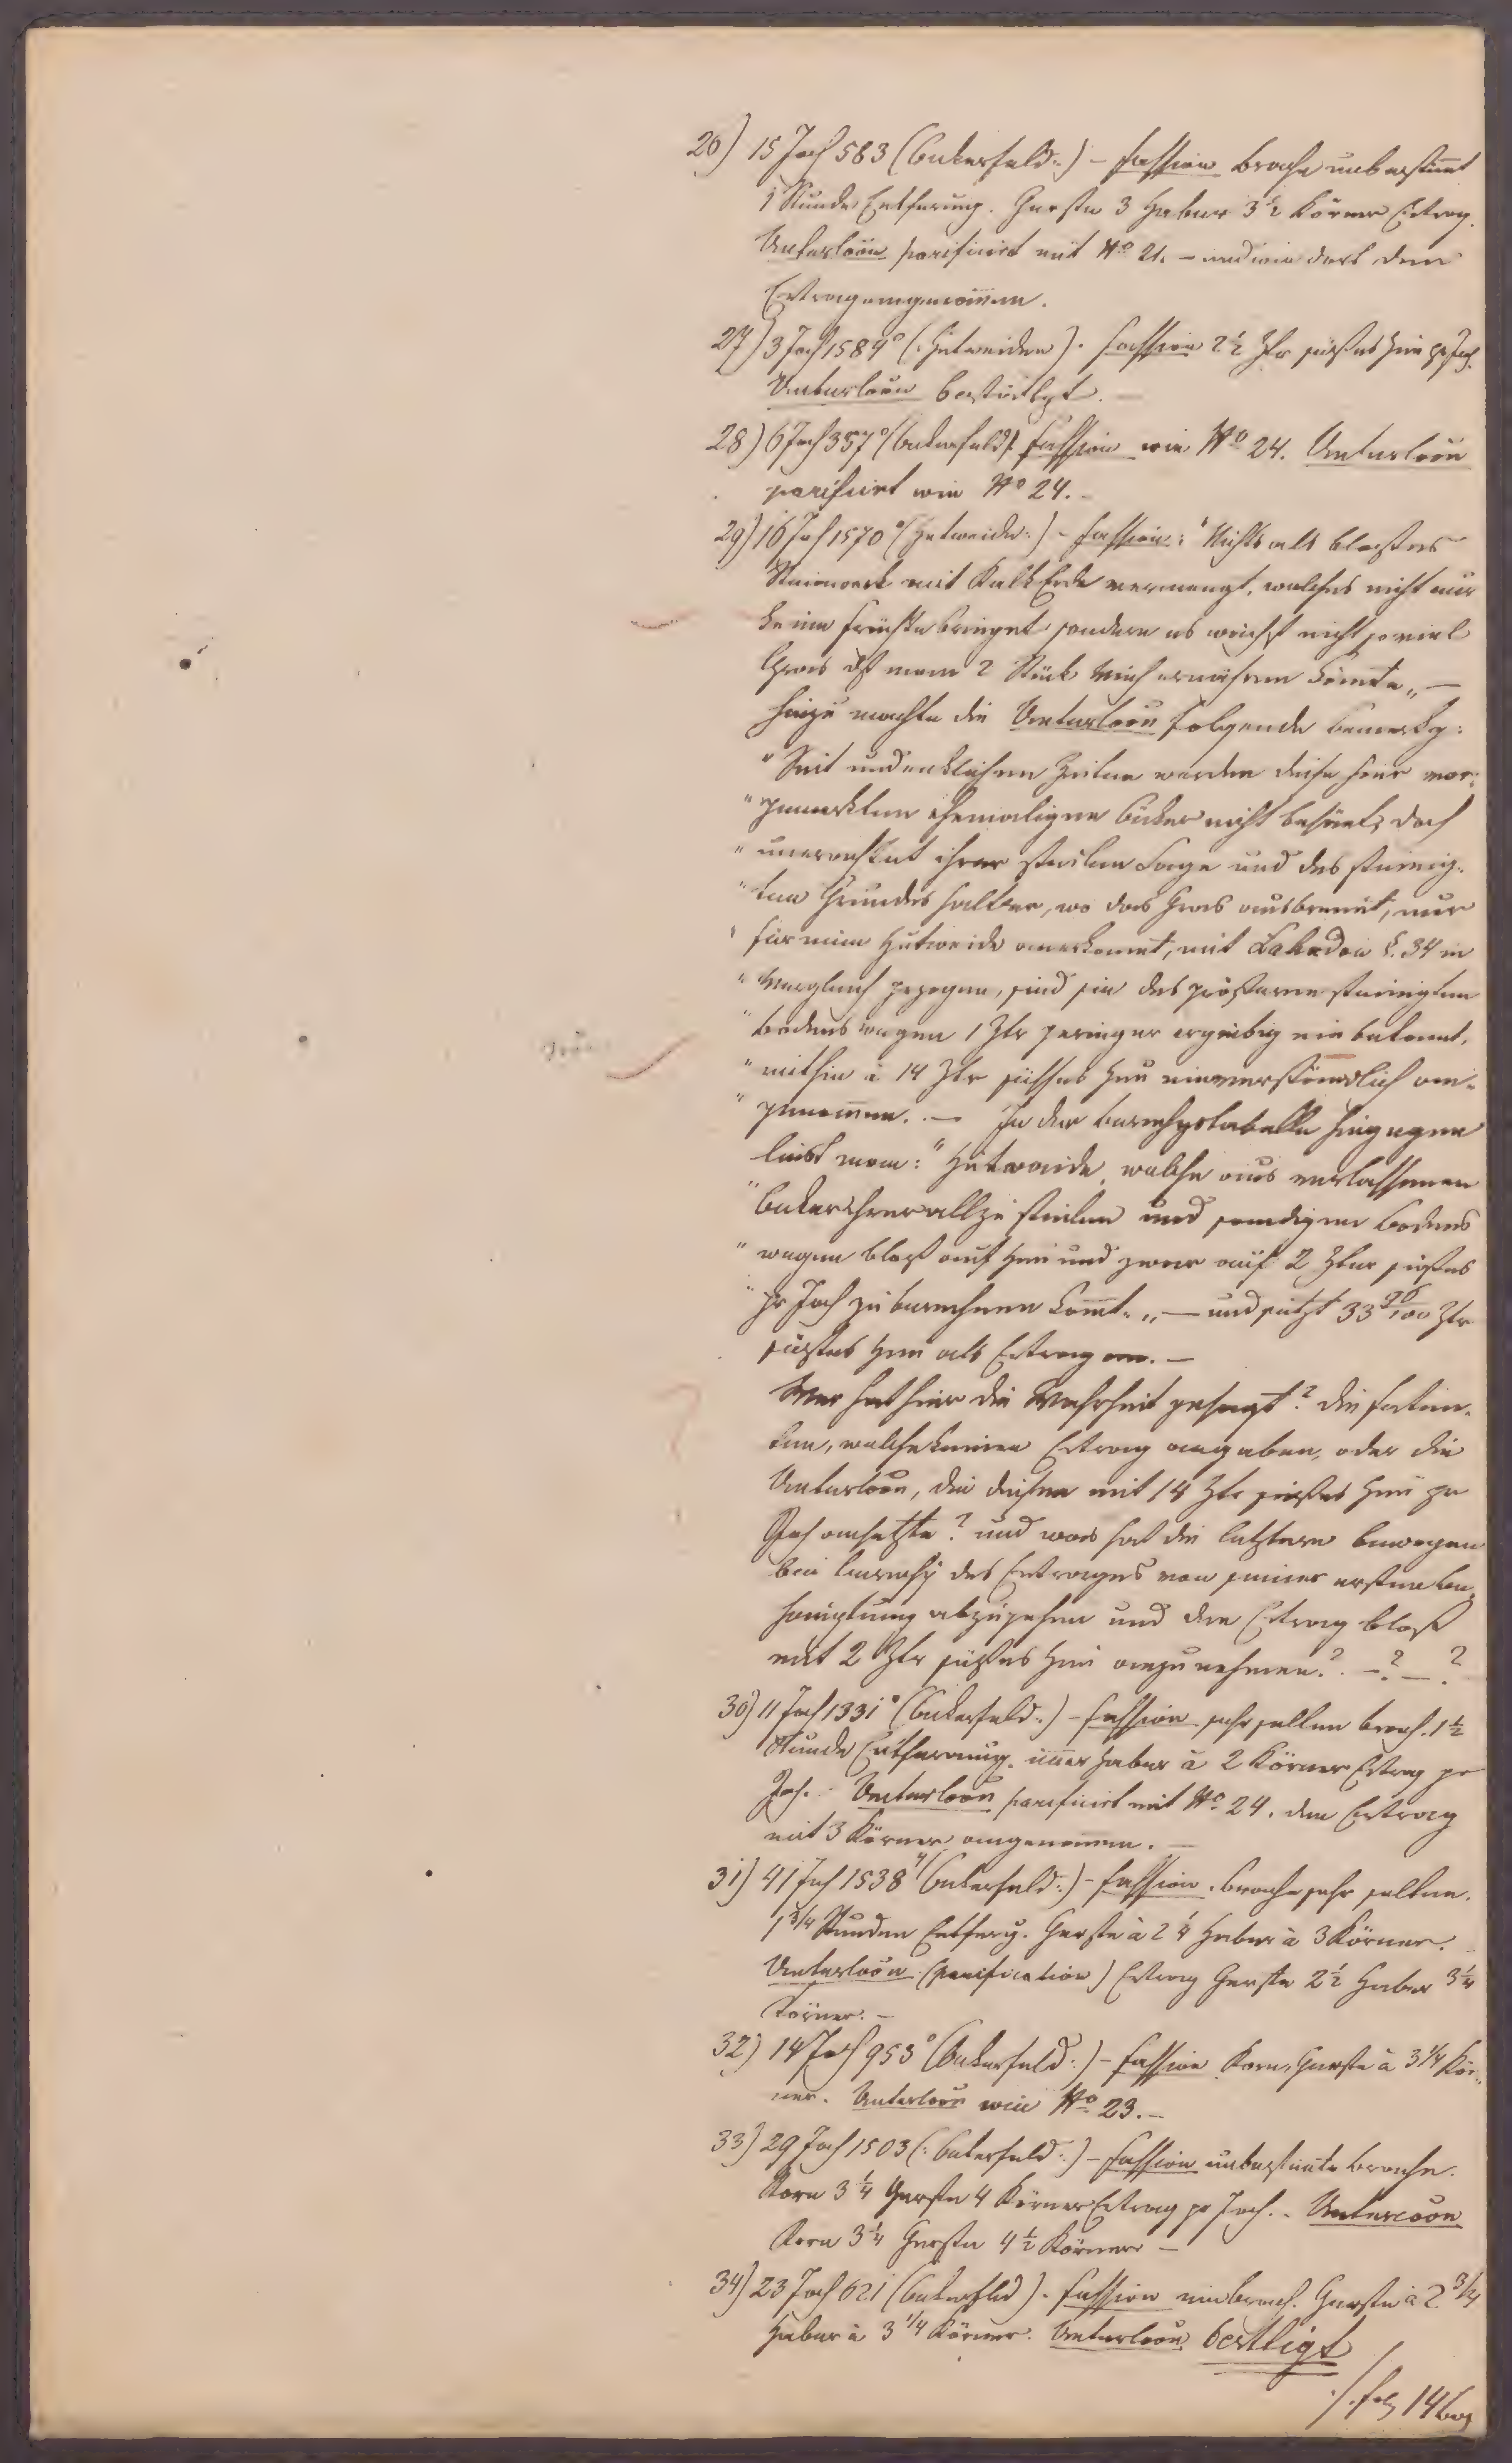 26) 15 Joch 583 (Ackerfeld:) – Fassion Brache unbestim̄t
1 Stunde Entfernung. Gerste 3 Haber 3½ Körner Ertrag.
Untersköõn parificirt mit No 21. – und wie dort den
Ertrag angenom̄en.
27) 3 Joch 1589° (: Hutweiden). Fassion 2½ Ztr süßes Heu pr Joch.
bestättigt. –
28) 6 Joch 357° (Ackerfeld). Fassion wie No 24.
parificirt wie No 24. –
29) 16 Joch 1570° (Hutweide:) – Fassion: "Nichts als bloßes
Steinwerk mit Kalk Erde vermengt, welches nicht nur
keine Früchte bringet sondern es wächst nicht so viel
Gras dß man 2 Stück Vieh ernähren könnte„ –
hiezu machte die folgende Bemerkg:
"Seit undenklichen Zeiten werden diese hier vor-
"gemerkten ehemaligen Äcker nicht besäet, doch
"unerachtet ihrer steilen Lage und des steinig-
"ten Grundes halber, wo das Gras ausbrennt, nur
"für eine Hutweide anerkennt, mit §. 34 in
"Vergleich gezogen, sind sie des größeren steinigten
"Bodens wegen 1 Ztr geringer ergiebig ein bekennt,
"mithin à 14 Ztr süsses Heu einverständlich an-
"genom̄en. – In der Berechgstabelle hingegen
liest man: "Hutweide, welche aus verlassenen
"Äcker ihrer allzu steilen und sandigen Bodens
"wegen bloß auf Heu und zwar auf 2 Ztner süßes
"pr Joch zu berechnen kom̄t.„ – und setzt 33 96/100 Ztr
süßes Heu als Ertrag an. –
Wer hat hier die Wahrheit gesagt? die Faten-
ten, welche keinen Ertrag angaben, oder die
die diesen mit 14 Ztr süßes Heu pr
Joch ansetzte? und was hat die letztere bewogen
bei Berechg des Ertrages von seiner ersten Be-
hauptung abzugehen und den Ertrag bloß
mit 2 Ztr süßes Heu anzunehmen? – ? – ?
30) 11 Joch 1331° (Ackerfeld:) – Fassion sehr selten brach. 1½
Stunde Entfernung. im̄er Haber à 2 Körner Ertrag pr
Joch. – parificirt mit No 24. den Ertrag
mit 3 Körner angenommen. –
31) 41 Joch 1538 (Ackerfeld:) – Fassion. Brache sehr selten.
1¾ Stunden Entferg. Gerste à 2¼ Haber à 3 Körner.
(parification) Ertrag Gerste 2½ Haber 3¼
Körner. –
32) 14 Joch 953° (Ackerfeld:) – Fassion Korn, Gerste à 3¼ Kör-
ner. wie No 23. –
33) 29 Joch 1503 (: Ackerfeld:) – Fassion unbestim̄te Brache.
Korn 3¼ Gerste 4 Körner Ertrag pr Joch. –
Korn 3¼ Gerste 4½ Körner –
34) 23 Joch 621 (Ackerfeld). Fassion nie brach. Gerste à 2¾
Haber à 3¼ Körner. bestttigt
./. folg 14 Bog